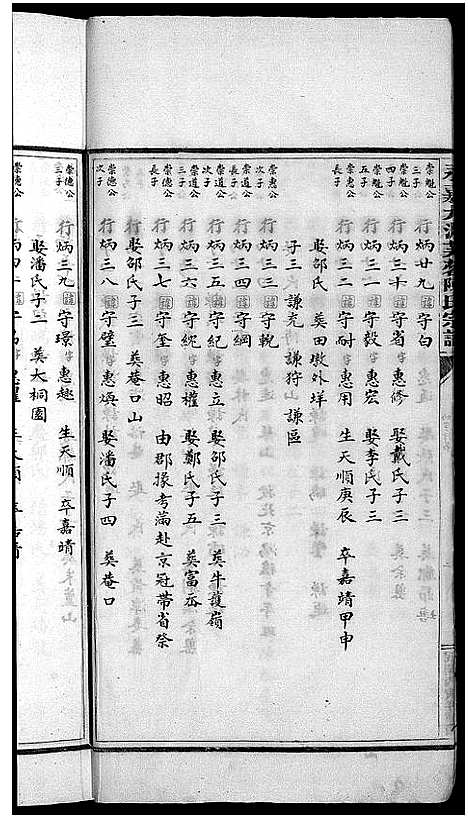 崇魁公三子 行炳廿九 諱守白
崇魁公四子 行炳三十 諱守省 字惠修 娶戴氏子三
崇魁公五子 行炳三一 諱守毅 字惠宏 娶李氏子三
崇惠公長子 行炳三二 諱守耐 字惠用 生天順庚辰 卒嘉靖甲申
娶邵氏 葬田墩外垟
子三 謙充 謙狩 謙區
崇惠公次子 行炳三三 諱守輗
崇道公長子 行炳三四 諱守綱
崇道公次子 行炳三五 諱守紀 字惠立 娶邵氏子三 葬牛護嶺
崇道公三子 行炳三六 諱守綂 字惠權 娶鄭氏子五 葬富岙
崇德公長子 行炳三七 諱守奎 字惠昭 由郡掾考滿赴京冠帶省祭
娶邵氏子三 葬菴口山
崇德公次子 行炳三八 諱守璧 字惠煥 娶潘氏子四 葬菴口
崇德公三子 行炳三九 諱守璟 字惠趣 生天順 卒嘉靖
娶潘氏子二 葬大桐園